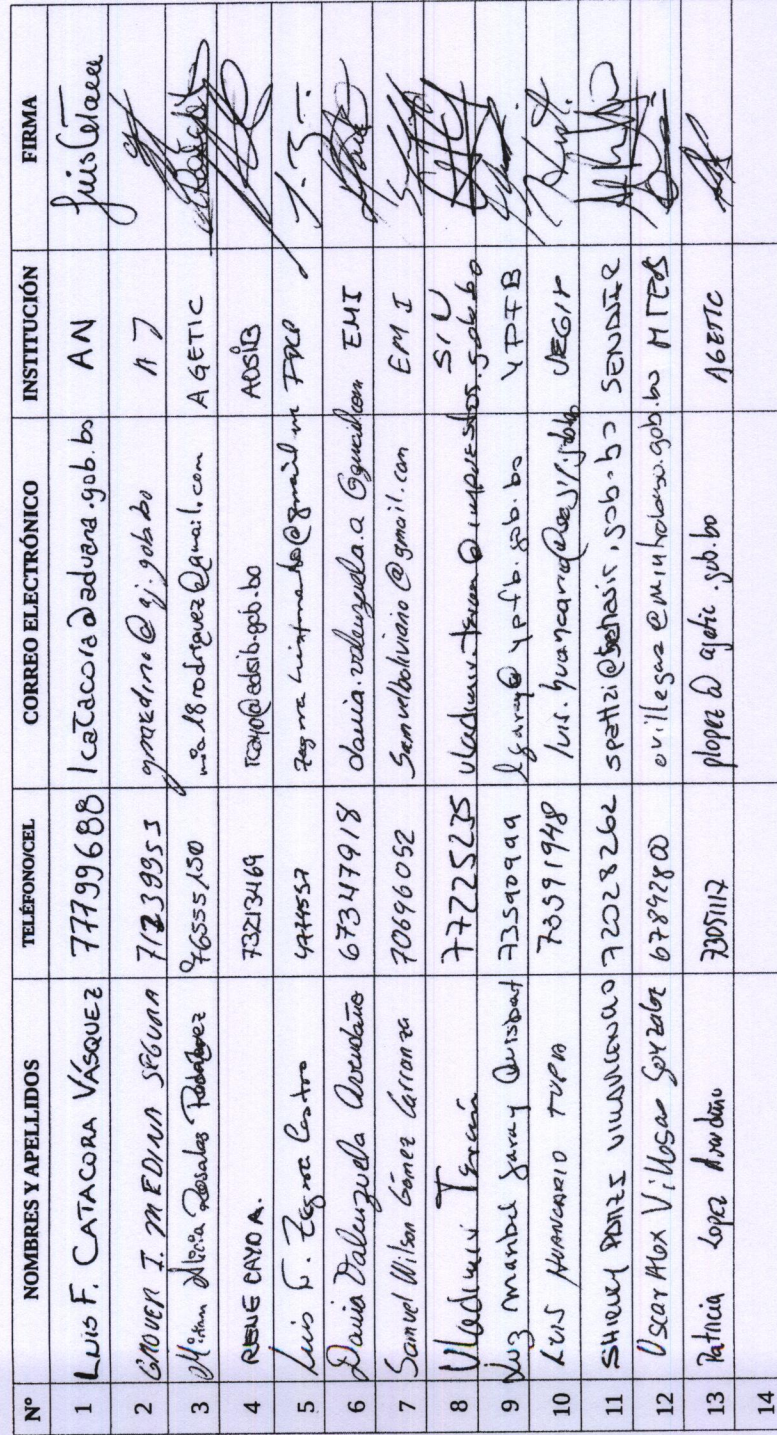 Nº NOMBRES Y APELLIDOS TELÉFONO/CEL CORREO ELECTRÓNICO INSTITUCIÓN FIRMA
1 LUIS F. CATACORA VÁSQUEZ 77799688 lcatacora@aduana.gob.bo AN
2 GROVER I. MEDINA SEGURA 71239953 gmedina@aj.gob.bo AJ
3 Miriam Rosales Rodriguez 76555150 AGETIC
4 RENE CAYO A. 73213469 rcayo@adsib.gob.bo ADSIB
5 Luis F. Zegarra Castro
6 Dania Valenzuela Avendaño 67347918 dania.valenzuela.a@gmail.com EMI
7 Samuel Wilson Gómez Carranza 70696052 Samuelboliviano@gmail.com EMI
8 Vladimir Terán 77225225 vladimir.teran@impuestos.gob.bo
9 Luz Maribel Garay Quisbert 73590999 lgaray@ypfb.gob.bo YPFB
10 LUIS HUANCARIO TUPA 73591948 SEGIP
11 SHIRLEY 72028262 SENASIR
12 Oscar Alex Villegas González 67892800 ovillegas@mintrabajo.gob.bo MTEPS
13 Patricia Lopez Avendaño 73051117 plopez@agetic.gob.bo AGETIC
14